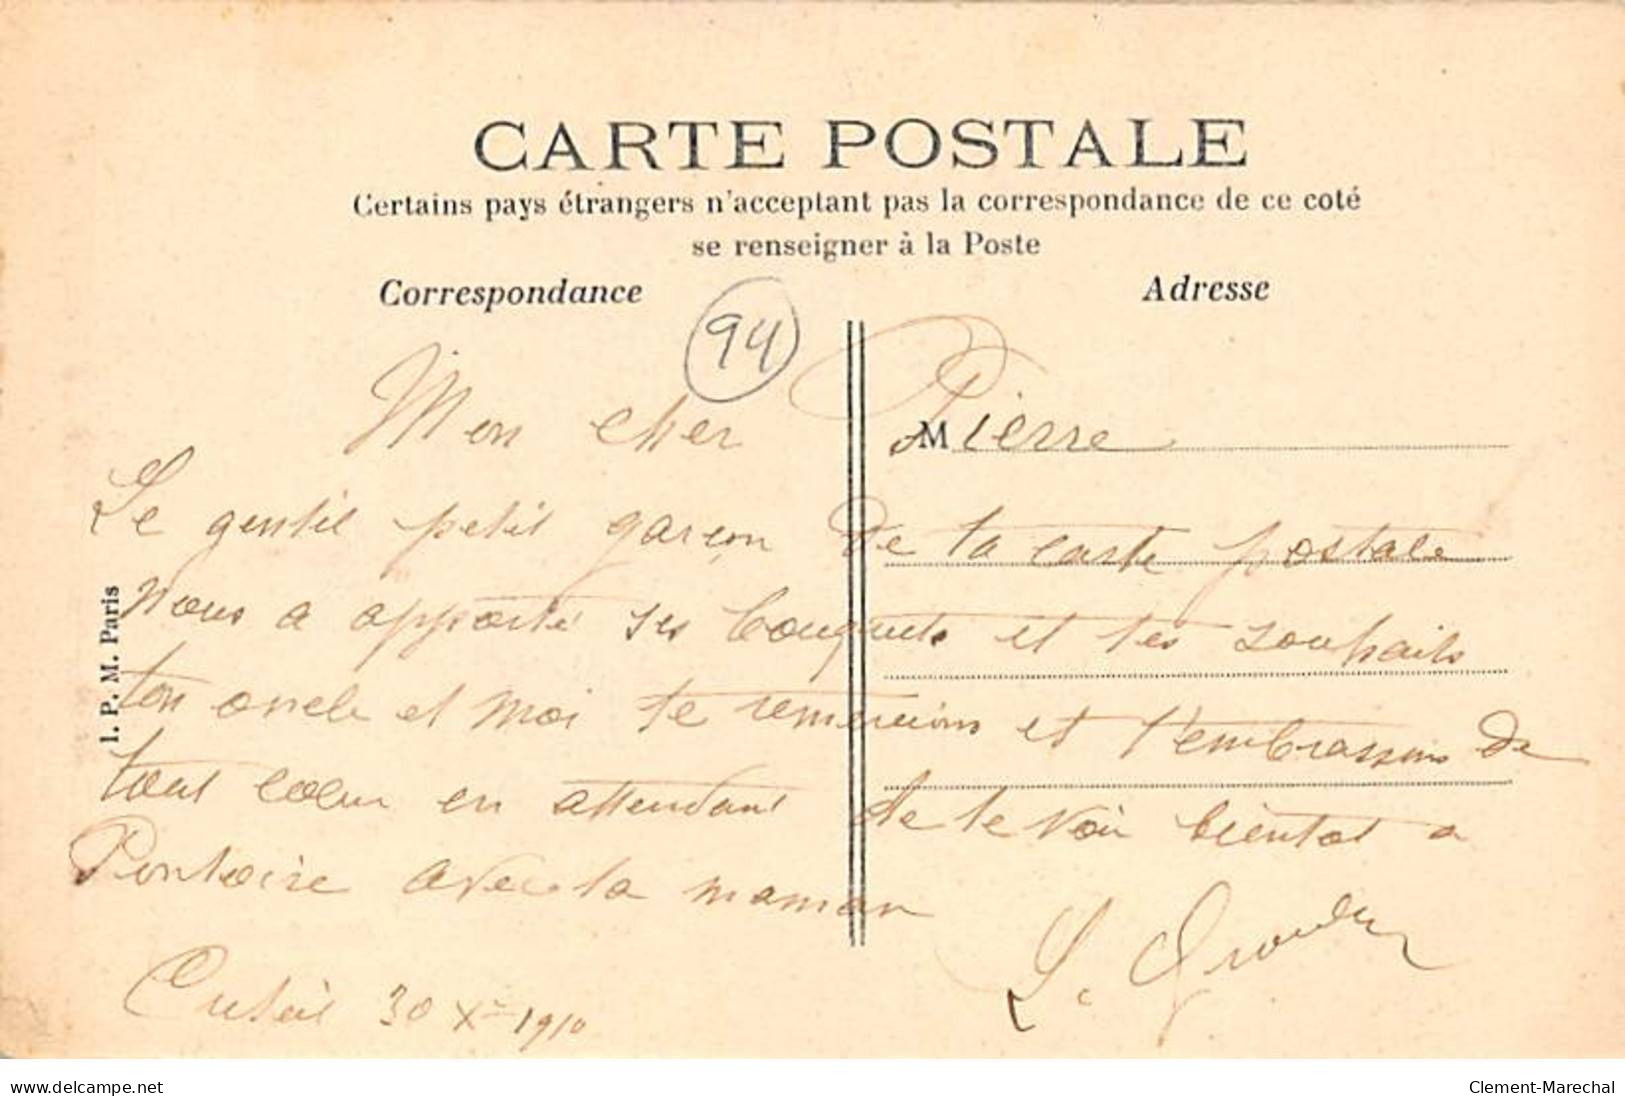 CARTE POSTALE
Certains pays étrangers n'acceptant pas la correspondance de ce coté
se renseigner à la Poste
Correspondance
Adresse
94
Mon cher M Pierre
Le gentil petit garçon de ta carte postale
nous a apporté ses bouquets et tes souhaits
ton oncle et moi te remercions et t'embrassons de
tout cœur en attendant de te voir bientot a
Pontoise avec ta maman
L.
Créteil 30 Xre 1910
I. P. M. Paris
www.delcampe.net
Clement-Marechal